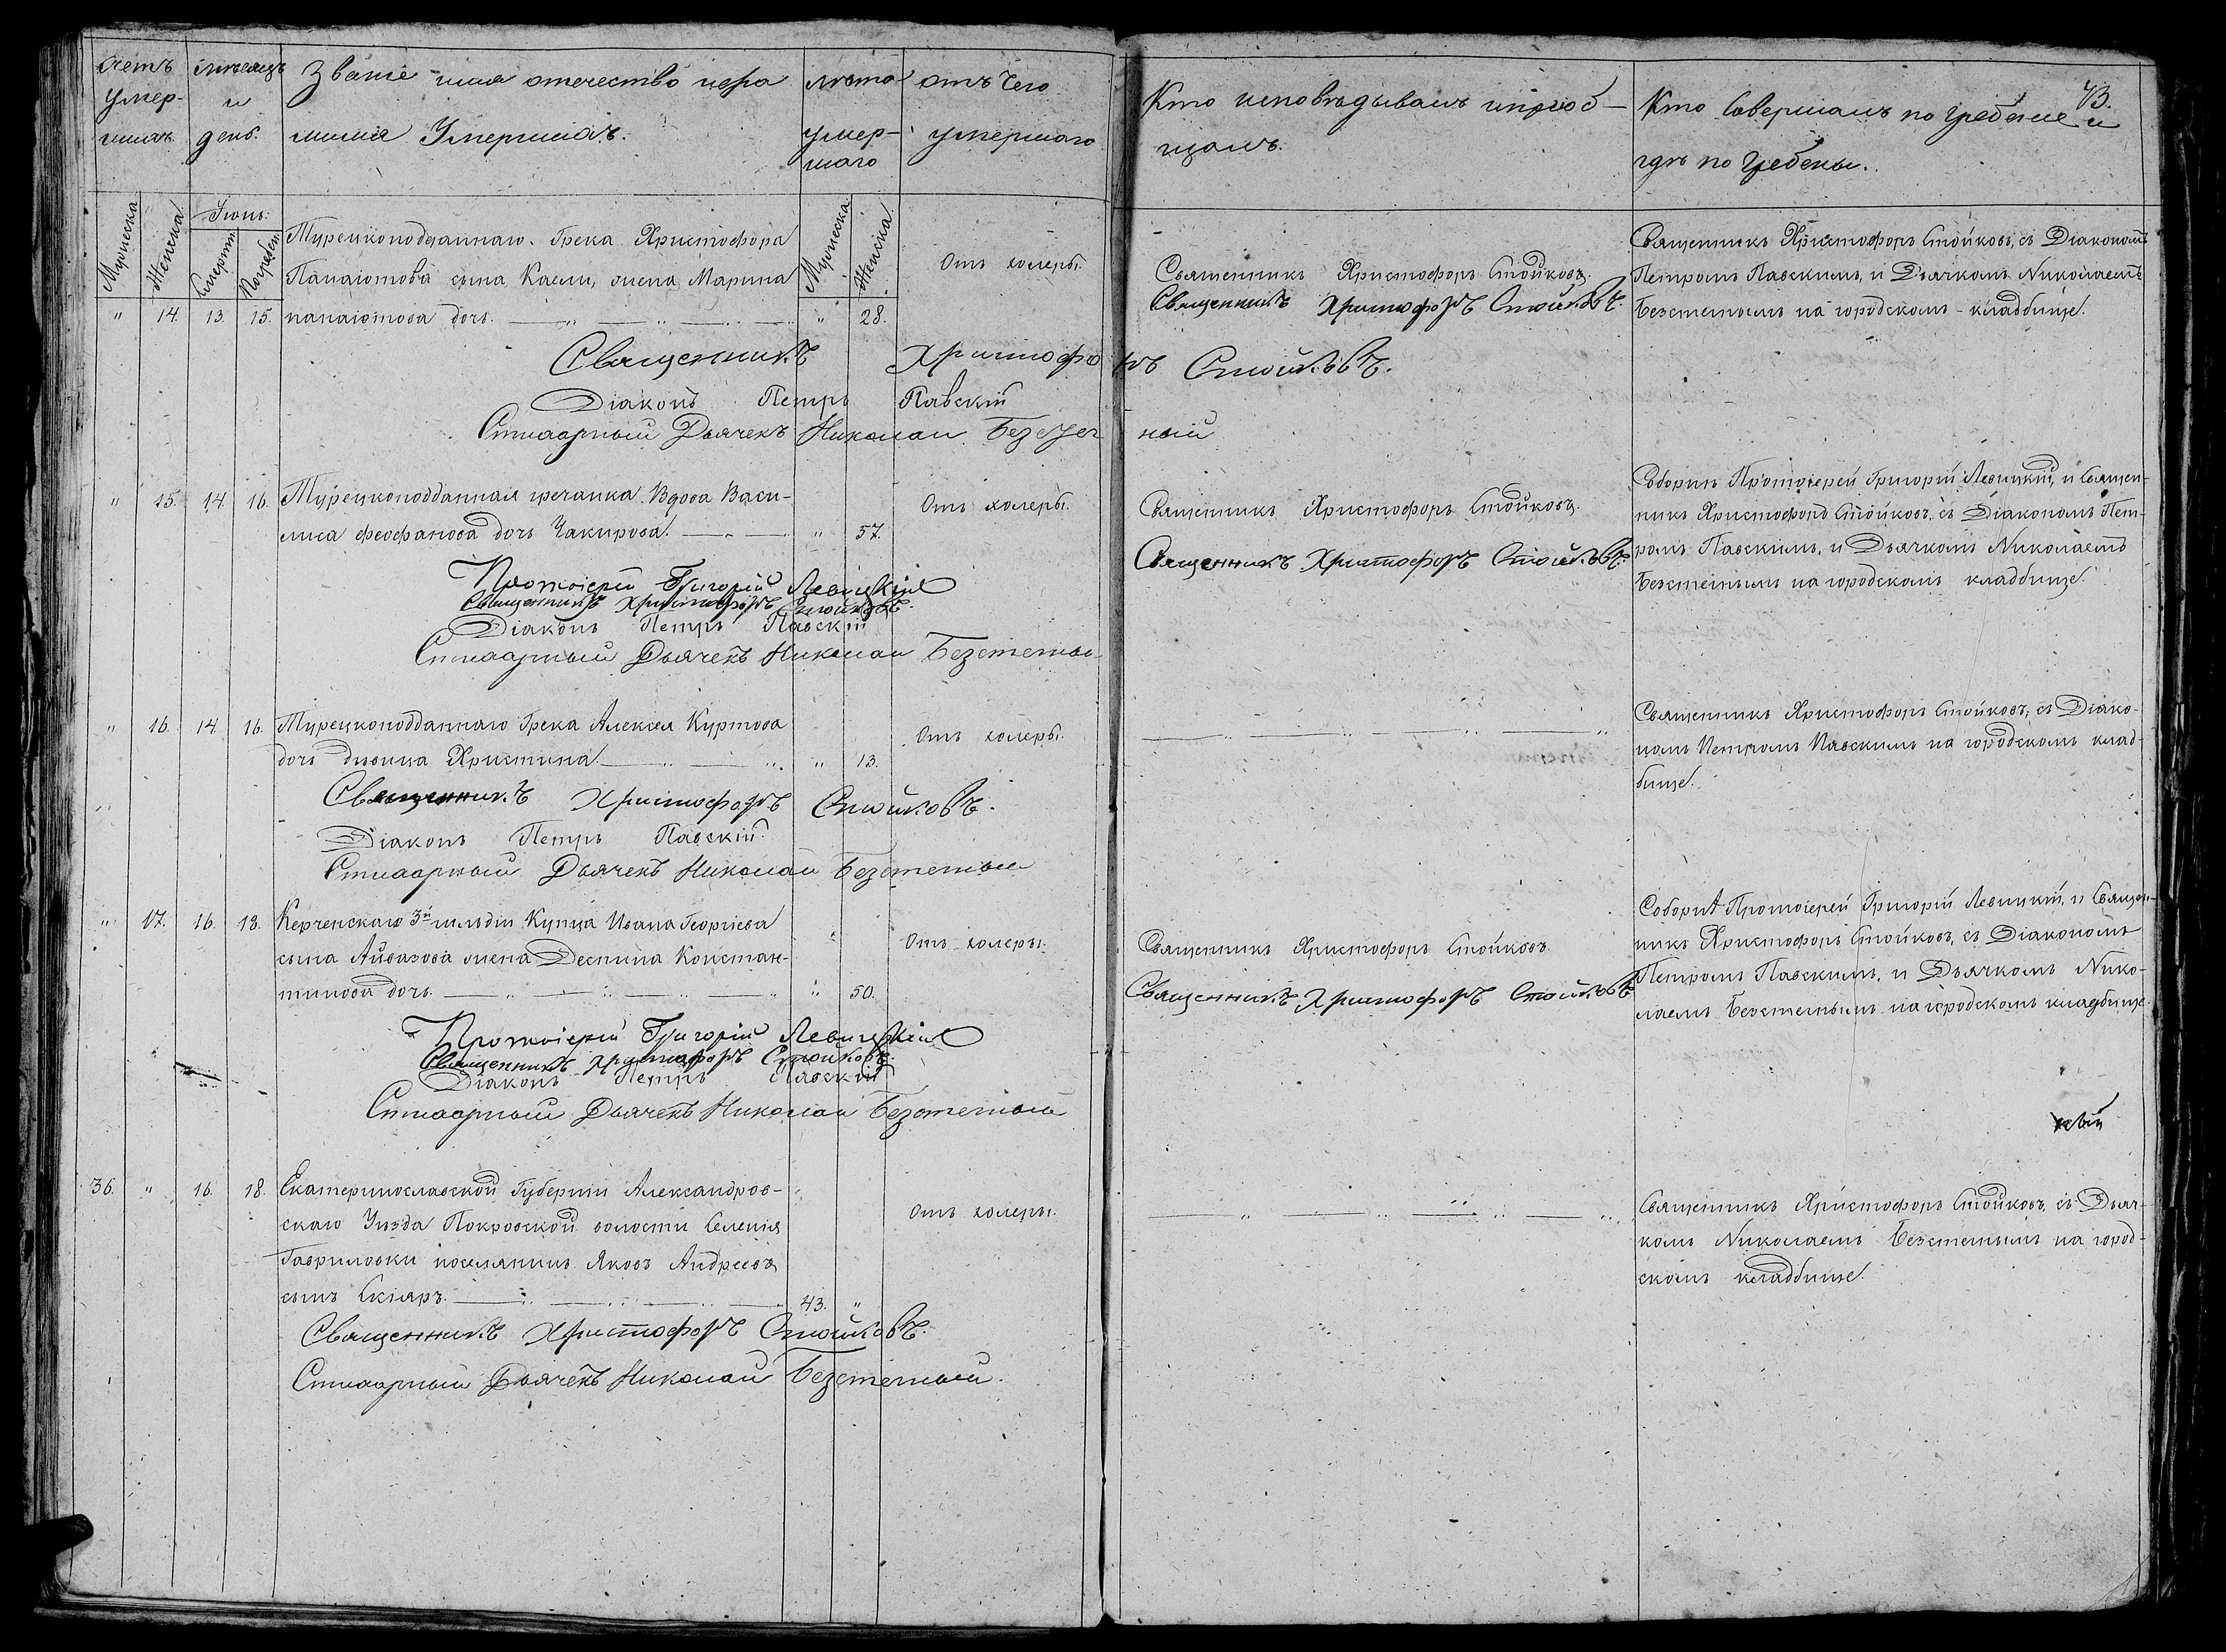 Счетъ Умер-
шихъ.
Мѣсяцъ
и
день.
Званіе имя отечество и фа
милія Умершихъ.
Лѣта
умер-
шаго
отъ чего
умершаго
Кто исповѣдывалъ и пріоб-
щалъ.
Кто Совершалъ погребеніе и
гдѣ погребены.
43.
Мужеска
Женска
Іюнь:
Смерти
Погребен.
Мужеска
Женска
" 14. 13. 15.
Турецкоподданнаго Грека Христофора
Панаіотова сына Каели, жена Марина
панаіотова дочь.
" 28.
Отъ холеры.
Священникъ Христофоръ Стойковъ.
Священникъ Христофоръ Стойковъ.
Священникъ Христофоръ Стойковъ, съ Діакономъ
Петромъ Павскимъ, и Дьячкомъ Николаемъ
Безстетнымъ на городскомъ кладбище.
Священникъ Христофоръ Стойковъ.
Діаконъ Петръ Павскій
Стихарный Дьячекъ Николай
" 15. 14. 16.
Турецкоподданная гречанка Вдова Васи-
лиса Феофанова дочь Чакирова.
" 57.
Отъ холеры.
Священникъ Христофоръ Стойковъ.
Священникъ Христофоръ Стойковъ.
Соборнъ Протоіерей Григорій Левицкій, и Священ-
никъ Христофоръ Стойковъ, съ Діакономъ Пет-
ромъ Павскимъ, и Дьячкомъ Николаемъ
Безстетнымъ на городскомъ кладбище.
Протоіерей Григорій Левицкій
Священникъ Христофоръ Стойковъ.
Діаконъ Петръ Павскій
Стихарный Дьячекъ Николай Безстетный
" 16. 14. 16.
Турецкоподданнаго Грека Алексея Куртова
дочь дѣвица Христина
" 13.
Отъ холеры.
Священникъ Христофоръ Стойковъ, съ Діако-
номъ Петромъ Павскимъ на городскомъ клад-
бище.
Священникъ Христофоръ Стойковъ.
Діаконъ Петръ Павскій.
Стихарный Дьячекъ Николай Безстетный
" 17. 16. 18.
Керченскаго 3й гильдіи Купца Ивана Георгіева
сына Айвазова жена Деспина Констан-
тинова дочь.
" 50.
Отъ холеры.
Священникъ Христофоръ Стойковъ.
Священникъ Христофоръ Стойковъ
Соборнѣ Протоіерей Григорій Левицкій, и Священ-
никъ Христофоръ Стойковъ, съ Діакономъ
Петромъ Павскимъ, и Дьячкомъ Нико-
лаемъ Безстетнымъ на городскомъ кладбище
Протоіерей Григорій Левицкій
Священникъ Христофоръ Стойковъ.
Діаконъ Петръ Павскій
Стихарный Дьячекъ Николай Безстетный
36. " 16. 18.
Екатеринославской Губерніи Александров-
скаго Уѣзда Покровской волости Селенія
Гавриловки поселянинъ Яковъ Андреевъ
сынъ Скляръ.
43. "
Отъ холеры.
Священникъ Христофоръ Стойковъ, съ Дьяч-
комъ Николаемъ Безстетнымъ на город-
скомъ кладбище.
Священникъ Христофоръ Стойковъ.
Стихарный Дьячекъ Николай Безстетный.